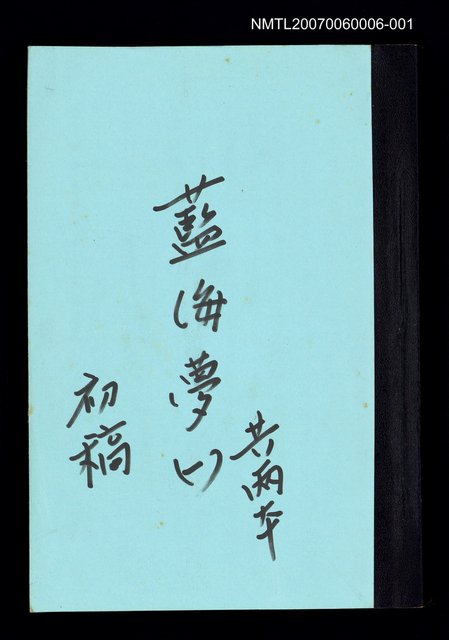 NMTL20070060006-001
藍海夢(一)
共兩本
初稿